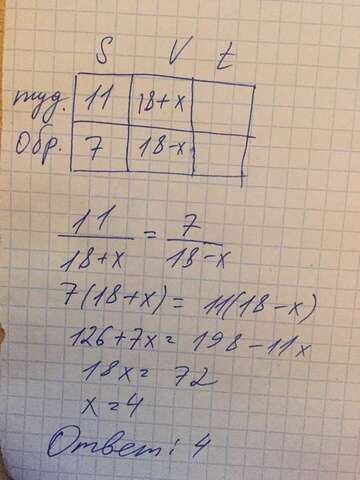 S V t
туд. 11 18+x
Обр. 7 18-x
11/18+x = 7/18-x
7(18+x) = 11(18-x)
126+7x = 198-11x
18x = 72
x = 4
Ответ: 4